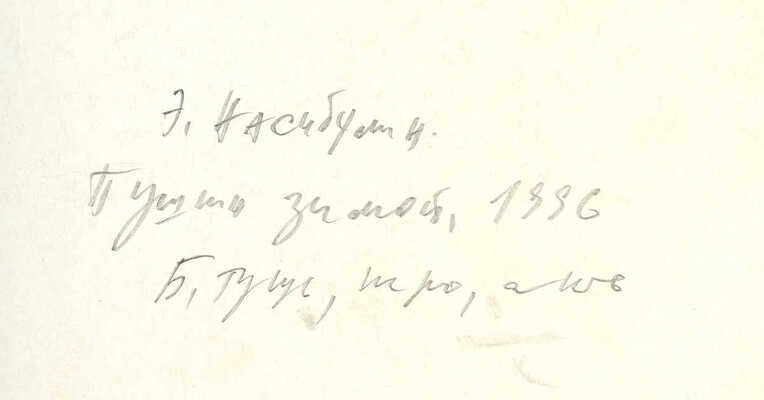 Э. Насибулин.
Пушкин зимой, 1996
Б, тушь, перо, акв